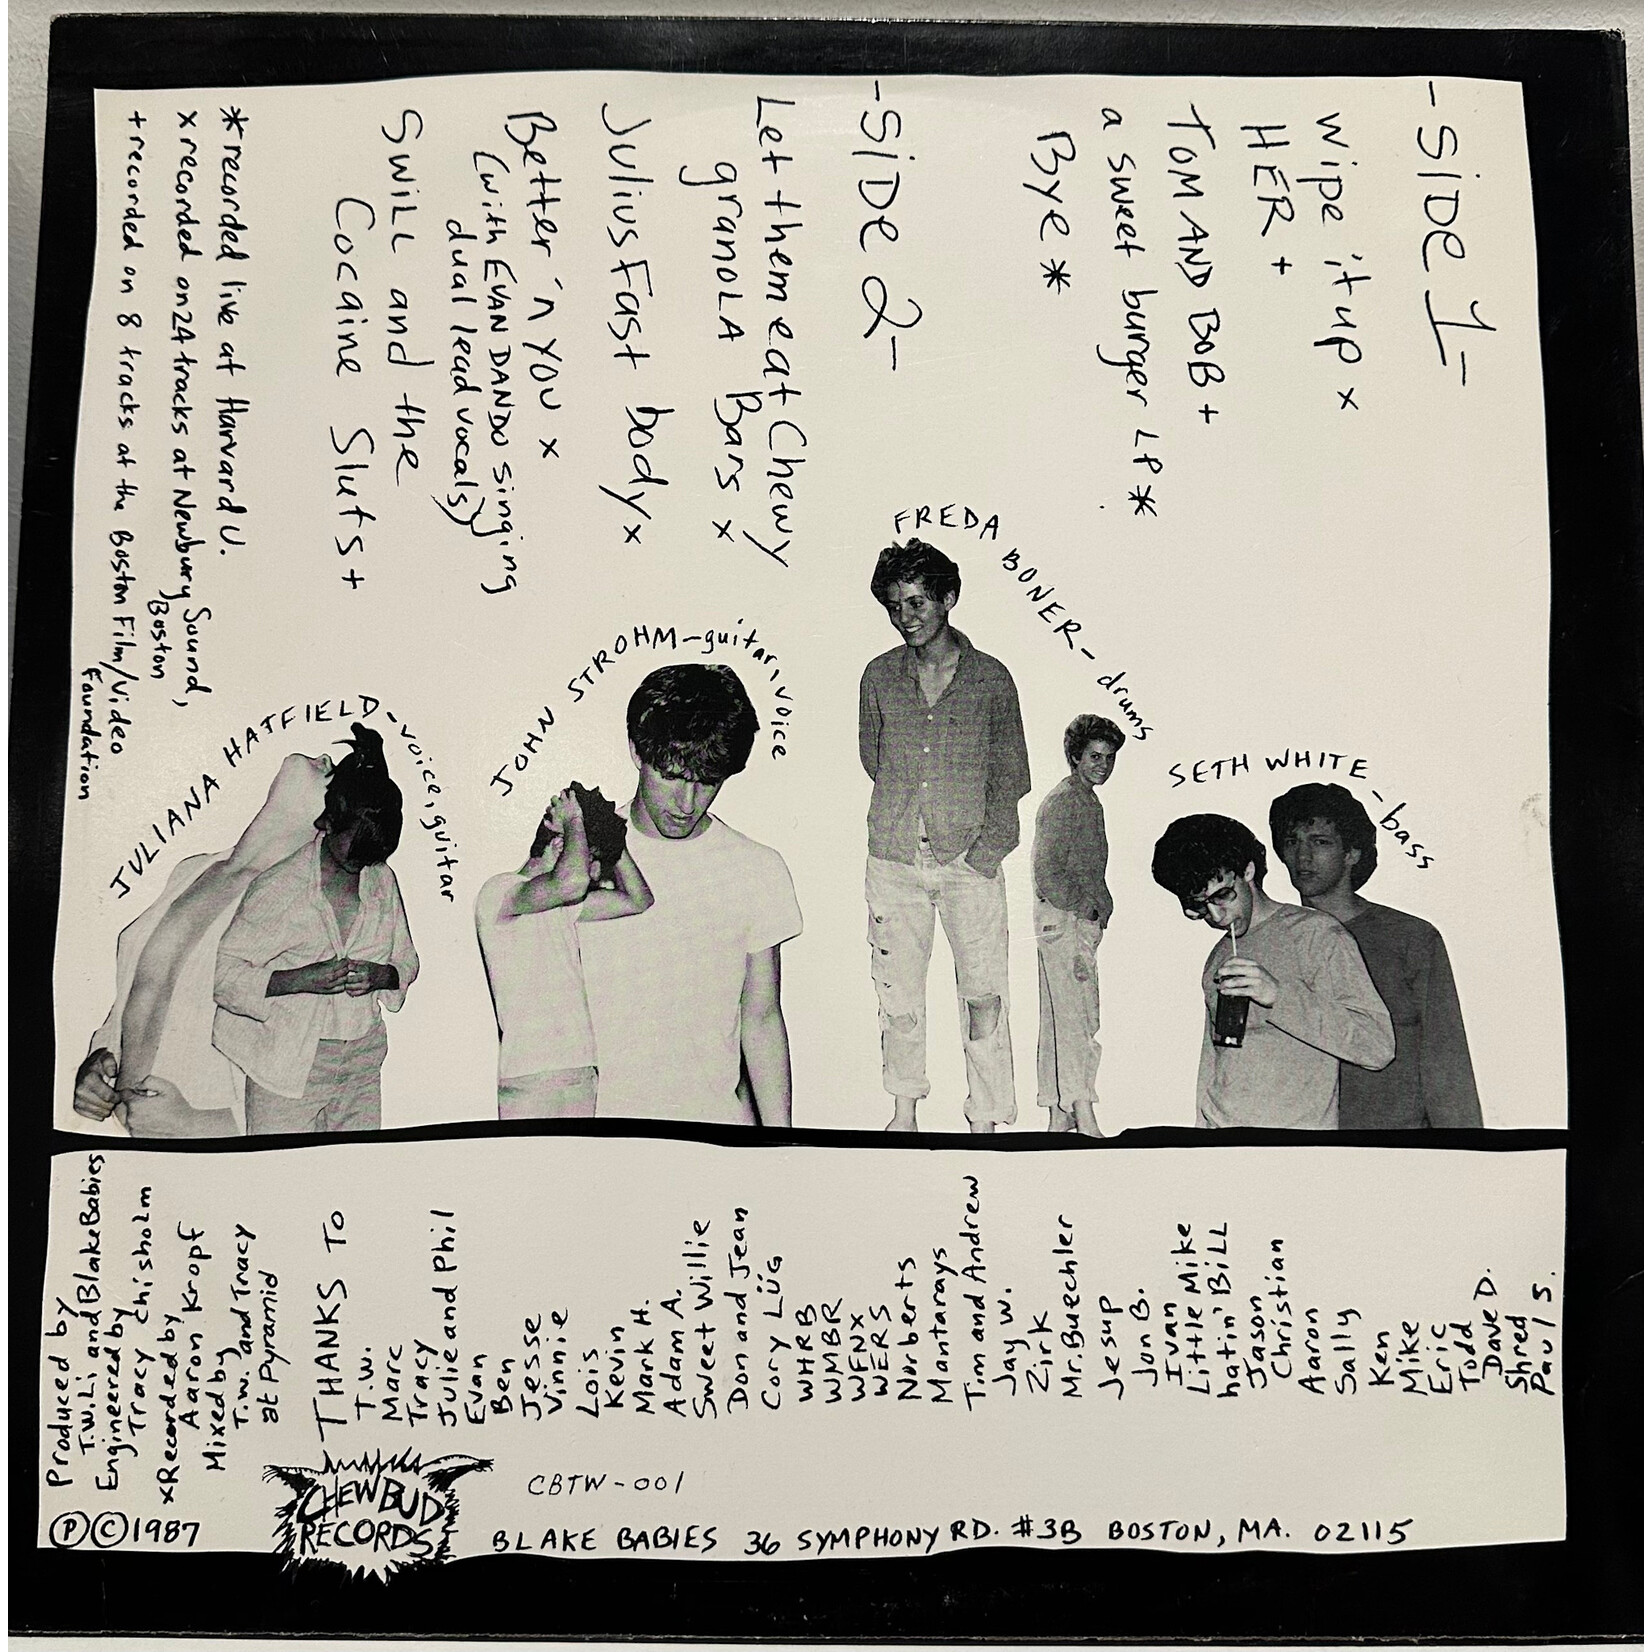 -SiDe 1-
wipe it up x
HER +
TOM AND BoB +
a sweet burger LP *
Bye *
-SiDe 2-
Let them eat Chewy
granoLA Bars x
Julius Fast body x
Better 'n you x
(with EVAN DANDO singing
dual lead vocals)
Swill and the
Cocaine Sluts +
* recorded live at Harvard U.
x recorded on 24 tracks at Newbury Sound,
Boston
+ recorded on 8 tracks at the Boston Film/Video
Foundation
JULIANA HATFIELD - voice, guitar
JOHN STROHM - guitar, voice
FREDA BONER - drums
SETH WHITE - bass
Produced by
T.W. Li and Blake Babies
Engineered by
Tracy Chisholm
x Recorded by
Aaron Kropf
Mixed by
T.W. and Tracy
at Pyramid
THANKS TO
T.W.
Marc
Tracy
Julie and Phil
Evan
Ben
Jesse
Vinnie
Lois
Kevin
Mark H.
Adam A.
Sweet Willie
Don and Jean
Cory Lüg
WHRB
WMBR
WFNX
WERS
Norberts
Mantarays
Tim and Andrew
Jay W.
Zirk
Mr. Buechler
Jesup
Jon B.
Ivan
Little Mike
hatin' BiLL
Jason
Christian
Aaron
Sally
Ken
Mike
Eric
Todd
Dave D.
Shred
Paul S.
CHEWBUD
RECORDS
CBTW-001
Ⓟ©1987
BLAKE BABIES 36 SYMPHONY RD. #3B BOSTON, MA. 02115